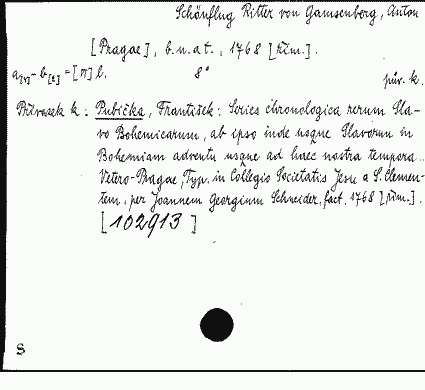 Schönflug Ritter von Gamsenberg, Anton
[Pragae], b.n.a t., 1768 [řím.].
a[2v]-b[2] = [11] l. 8° pův. k.
Přívazek k: Pubička, František: Series chronologica rerum Sla-
vo Bohemicarum, ab ipso inde usque Slavorum in
Bohemiam adventu usque ad haec nostra tempora...
Vetero-Pragae, Typ. in Collegio Societatis Jesu a S. Clemen-
tem, per Joannem Georgium Schneider, fact. 1768 [řím.].
[102913]
S